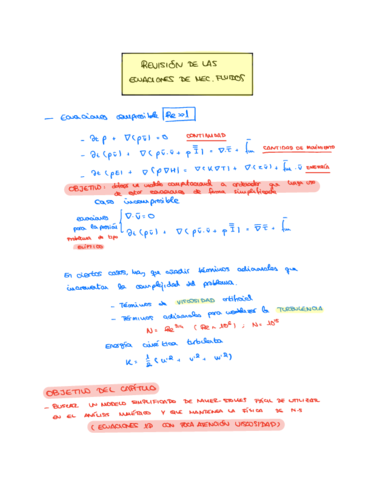 REVISIÓN DE LAS
ECUACIONES DE MEC. FLUIDOS
— Ecuaciones compresible Re>>1
- ∂t ρ + ∇(ρū) = 0 CONTINUIDAD
- ∂t(ρū) + ∇(ρū·ū + ρ Ī) = ∇·τ̄ + f̄m CANTIDAD DE MOVIMIENTO
- ∂t(ρE) + ∇(ρūH) = ∇(K∇T) + ∇(τū) + f̄m·ū ENERGÍA
OBJETIVO: computacional a ordenador que
de estas ecuaciones de forma simplificada
Caso incompresible
ecuaciones
para la presión
problema de tipo
ELÍPTICO
∇·ū = 0
∂t(ρū) + ∇(ρū·ū + ρ Ī) = ∇τ̄ + f̄m
En ciertos casos, hay que añadir términos adicionales que
incrementan la complejidad del problema.
- Términos de VISCOSIDAD artificial
- Términos adicionales para modelizar la TURBULENCIA
Energía cinética turbulenta
K = 1/2 (u'² + v'² + w'²)
OBJETIVO DEL CAPÍTULO
- BUSCAR UN MODELO SIMPLIFICADO DE NAVIER-STOKES FÁCIL DE UTILIZAR
EN EL ANÁLISIS NUMÉRICO Y QUE MANTENGA LA FÍSICA DE N-S
(ECUACIONES 1D CON POCA ATENCIÓN VISCOSIDAD)